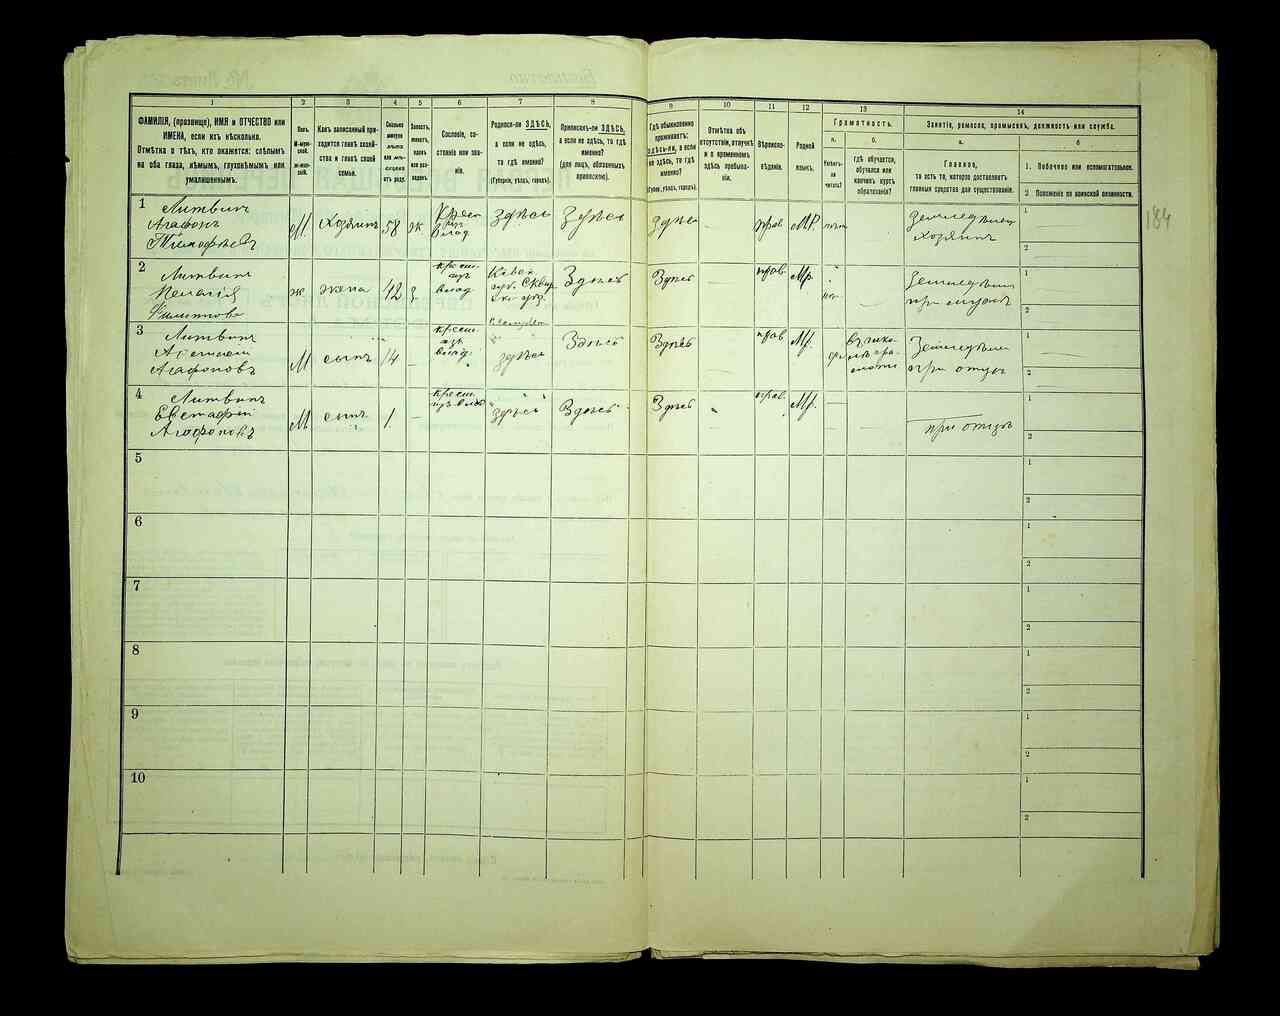 1
2
3
4
5
6
7
8
9
10
11
12
13
14
ФАМИЛІЯ, (прозвище), ИМЯ и ОТЧЕСТВО или
ИМЕНА, если ихъ нѣсколько.
Отмѣтка о тѣхъ, кто окажется: слѣпымъ
на оба глаза, нѣмымъ, глухонѣмымъ или
умалишеннымъ.
Полъ.
М-муж-
ской.
Ж-жен-
скій.
Какъ записанный при-
ходится главѣ хозяй-
ства и главѣ своей
семьи.
Сколько
минуло
лѣтъ
или мѣ-
сяцевъ
отъ роду.
Холостъ,
женатъ,
вдовъ
или раз-
веденъ.
Сословіе, со-
стояніе или зва-
ніе.
Родился-ли ЗДѢСЬ,
а если не здѣсь,
то гдѣ именно?
(Губернія, уѣздъ, городъ).
Приписанъ-ли ЗДѢСЬ,
а если не здѣсь, то гдѣ
именно?
(для лицъ, обязанныхъ
припискою).
Гдѣ обыкновенно
проживаетъ:
ЗДѢСЬ-ЛИ, а если
не здѣсь, то гдѣ
именно?
(Губернія, уѣздъ, городъ).
Отмѣтка объ
отсутствіи, отлучкѣ
и о временномъ
здѣсь пребыва-
ніи.
Вѣроиспо-
вѣданіе.
Родной
языкъ.
Грамотность.
а.
Умѣетъ-
ли
читать?
б.
гдѣ обучается,
обучался или
кончилъ курсъ
образованія?
Занятіе, ремесло, промыселъ, должность или служба.
а.
Главное,
то есть то, которое доставляетъ
главныя средства для существованія.
б
1. Побочное или вспомогательное.
2. Положеніе по воинской повинности.
1
Литвинъ
Агафонъ
Тимофѣевъ
М.
Хозяинъ
58
ж
здѣсь
Здѣсь
Здѣсь
прав.
МР.
нѣт
Земледѣлец
хозяинъ
1
2
184
2
Литвинъ
Пелагія
Филиппова
ж
жена
42
з.
Здѣсь
Здѣсь
прав
Мр.
нѣт
Земледѣліе
при мужѣ
1
2
3
Литвинъ
Агафоновъ
М
сынъ
14
здѣсь
Здѣсь
Здѣсь
прав
Мр.
Земледѣліе
при отцѣ
1
2
4
Литвинъ
Евстафій
Агафоновъ
М
сынъ
1.
здѣсь
Здѣсь
Здѣсь
прав.
Мр.
при отцѣ
1
2
5
1
2
6
1
2
7
1
2
8
1
2
9
1
2
10
1
2